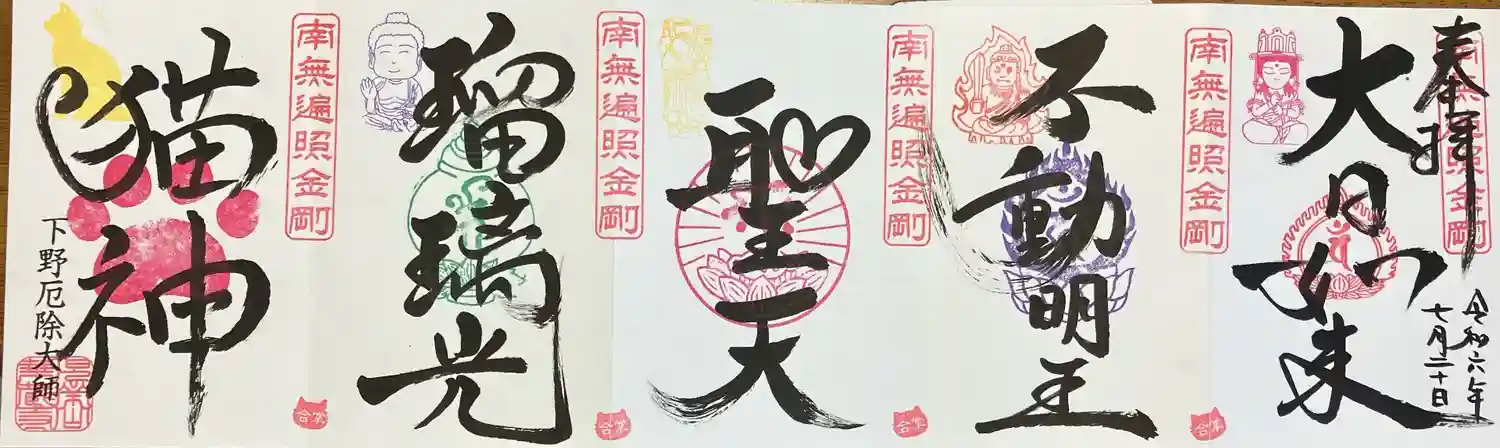 奉拝
南無遍照金剛
大日如来
令和六年
七月二十日
南無遍照金剛
不動明王
南無遍照金剛
聖天
南無遍照金剛
瑠璃光
南無遍照金剛
猫神
下野厄除大師